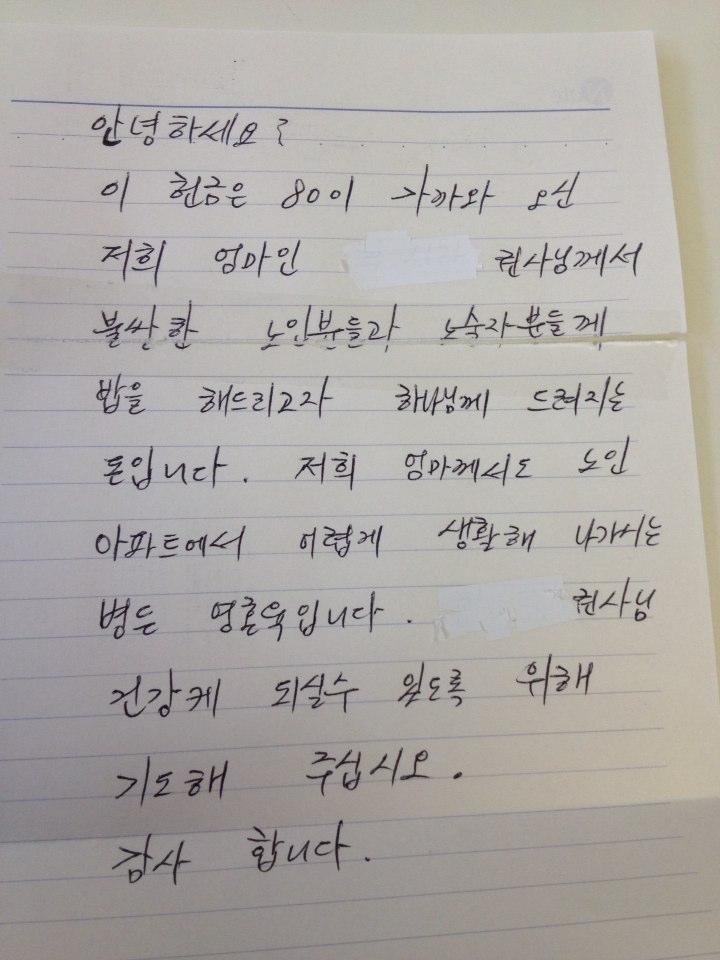 안녕하세요?
이 헌금은 80이 가까와 오신
저희 엄마인 권사님께서
불쌍한 노인분들과 노숙자분들께
밥을 해드리고자 하나님께 드려지는
돈입니다. 저희 엄마께서도 노인
아파트에서 어렵게 생활해 나가시는
병든 영혼육입니다. 권사님
건강케 되실수 있도록 위해
기도해 주십시오.
감사 합니다.